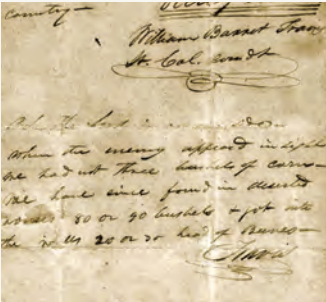 country —
William Barret Travis
Lt. Col. comdt
P.S. The Lord is on our side —
When the enemy appeard in sight
we had not three bushels of corn —
we have since found in deserted
houses 80 or 90 bushels & got into
the walls 20 or 30 head of Beeves —
Travis